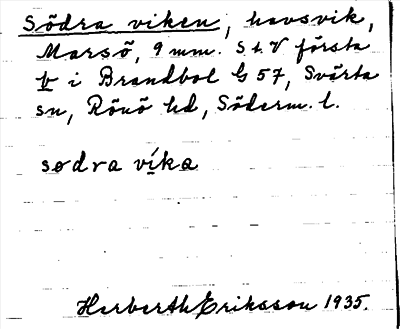 Södra viken, havsvik,
Marsö, 9 mm. S t. V första
b i Brandbol G 57, Svärta
sn, Rönö hd, Söderm. l.
sødra ví̱ka
Herberth Eriksson 1935.